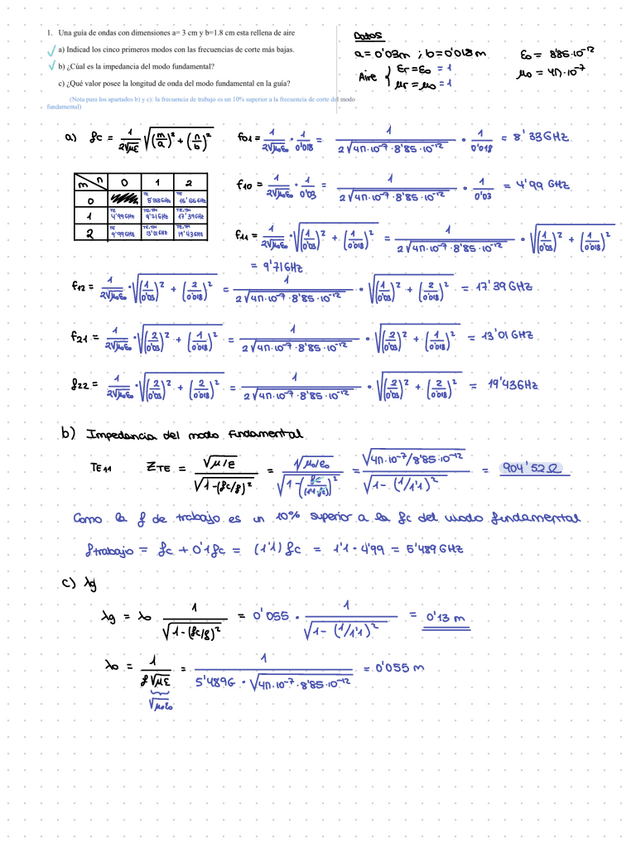 1. Una guía de ondas con dimensiones a= 3 cm y b=1.8 cm esta rellena de aire
a) Indicad los cinco primeros modos con las frecuencias de corte más bajas.
b) ¿Cúal es la impedancia del modo fundamental?
c) ¿Qué valor posee la longitud de onda del modo fundamental en la guía?
(Nota para los apartados b) y c): la frecuencia de trabajo es un 10% superior a la frecuencia de corte del modo
fundamental)
Datos
a=0'03m ; b=0'018m
Aire { εr=εo = 1
μr = μo = 1
εo = 8'85·10^-12
μo = 4π·10^-7
a) fc = 1/(2√με) √((m/a)² + (n/b)²)
f01 = 1/(2√μoεo) · 1/0'018 = 1/(2√(4π·10^-7·8'85·10^-12)) · 1/0'018 = 8'33GHZ
f10 = 1/(2√μoεo) · 1/0'03 = 1/(2√(4π·10^-7·8'85·10^-12)) · 1/0'03 = 4'99 GHZ
m n 0 1 2
0
1 TE 4'99GHz TE,TM 9'71GHz TE,TM 17'39GHz
2 TE 9'99GHz TE,TM 13'01GHz TE,TM 19'43GHz
f11 = 1/(2√μoεo) · √((1/0'03)² + (1/0'018)²) = 1/(2√(4π·10^-7·8'85·10^-12)) · √((1/0'03)² + (1/0'018)²)
= 9'71GHz
f12 = 1/(2√μoεo) · √((1/0'03)² + (2/0'018)²) = 1/(2√(4π·10^-7·8'85·10^-12)) · √((1/0'03)² + (2/0'018)²) = 17'39 GHZ
f21 = 1/(2√μoεo) · √((2/0'03)² + (1/0'018)²) = 1/(2√(4π·10^-7·8'85·10^-12)) · √((2/0'03)² + (1/0'018)²) = 13'01 GHZ
f22 = 1/(2√μoεo) · √((2/0'03)² + (2/0'018)²) = 1/(2√(4π·10^-7·8'85·10^-12)) · √((2/0'03)² + (2/0'018)²) = 19'43GHz
b) Impedancia del modo fundamental
TE11 ZTE = √(μ/ε)/√(1-(fc/f)²) = √(μo/εo)/√(1-(fc/(1'1 fc))²) = √(4π·10^-7/8'85·10^-12)/√(1-(1/1'1)²) = 904'52Ω
Como la f de trabajo es un 10% superior a la fc del modo fundamental.
ftrabajo = fc + 0'1fc = (1'1) fc = 1'1·4'99 = 5'489GHZ
c) λg
λg = λo 1/√(1-(fc/f)²) = 0'055 · 1/√(1-(1/1'1)²) = 0'13 m
λo = 1/(f√με) = 1/(5'489G · √(4π·10^-7·8'85·10^-12)) = 0'055 m
√μoεo